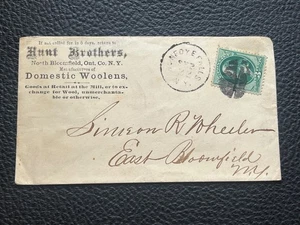 If not called for in 5 days, return to
Hunt Brothers,
North Bloomfield, Ont. Co. N. Y.
Manufacturers of
Domestic Woolens,
Goods at Retail at the Mill, or to ex-
change for Wool, unmerchanta-
ble or otherwise.
Simeon R Wheeler
East Bloomfield
N.Y.